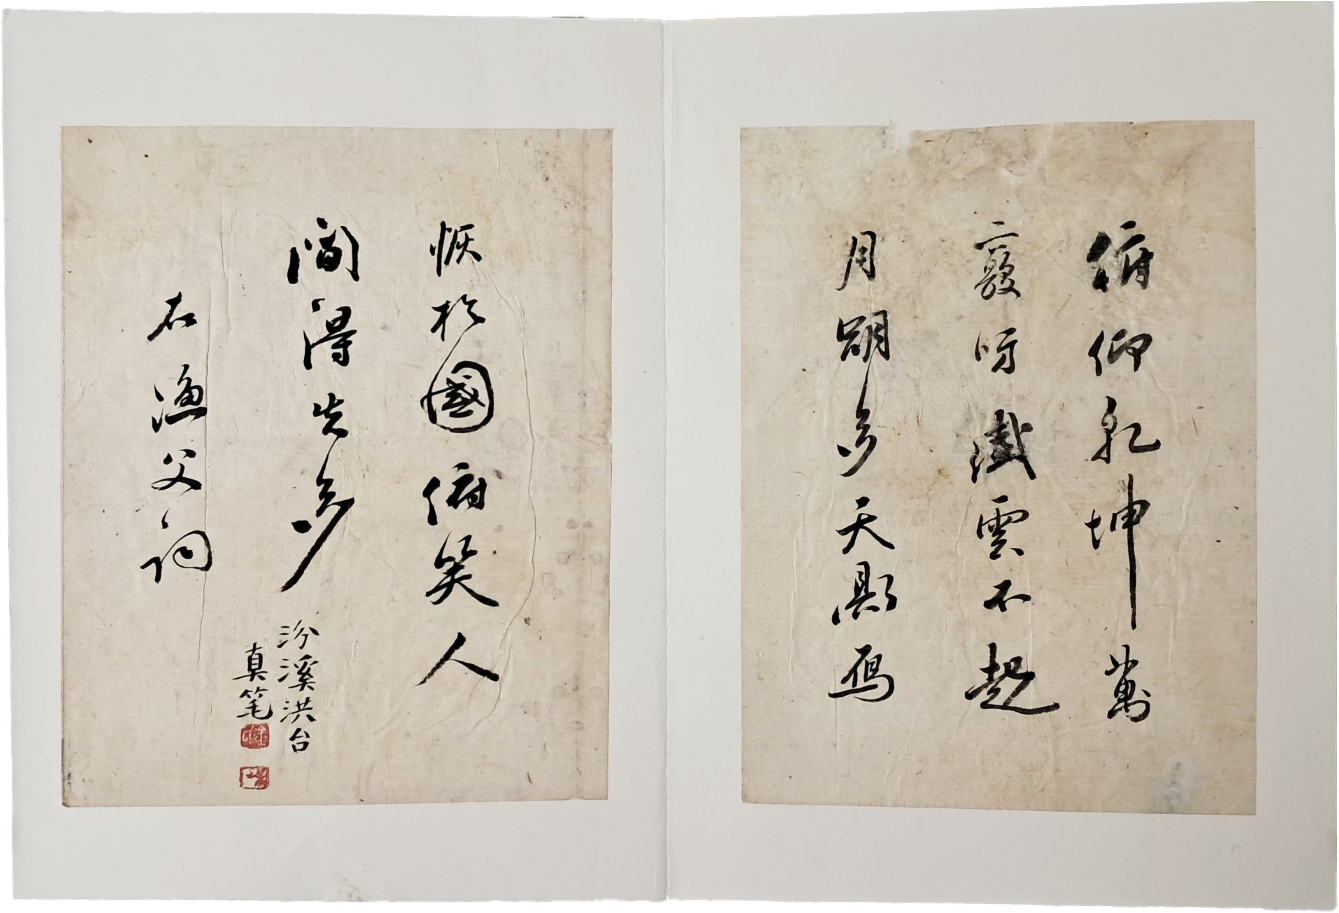 俯仰乾坤萬
呀纖雲不起
月朙多天
於國俯笑人
間得失多
右漁父詞
汾溪洪台
真笔